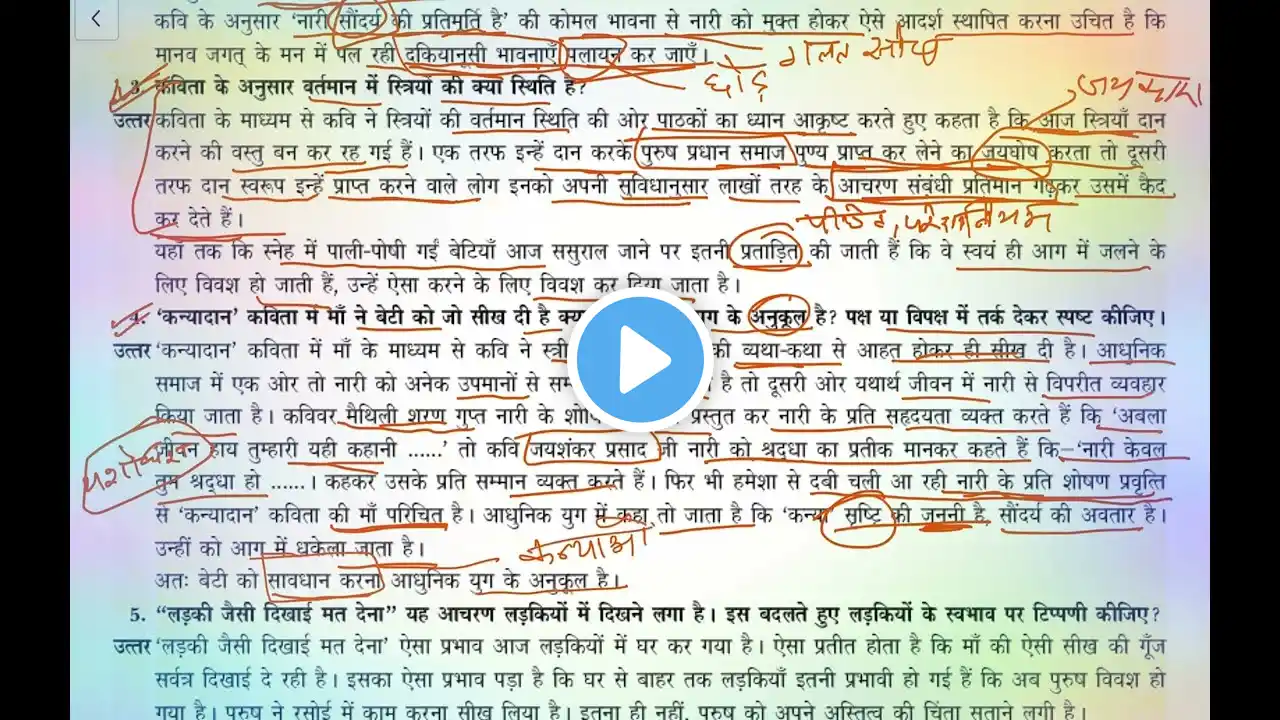 कवि के अनुसार 'नारी सौंदर्य की प्रतिमूर्ति है' की कोमल भावना से नारी को मुक्त होकर ऐसे आदर्श स्थापित करना उचित है कि
मानव जगत् के मन में पल रही दकियानूसी भावनाएँ पलायन कर जाएँ।
गलत सोच
छोड़
3. कविता के अनुसार वर्तमान में स्त्रियों की क्या स्थिति है?
जयकारा
उत्तर कविता के माध्यम से कवि ने स्त्रियों की वर्तमान स्थिति की ओर पाठकों का ध्यान आकृष्ट करते हुए कहता है कि आज स्त्रियाँ दान
करने की वस्तु बन कर रह गई हैं। एक तरफ इन्हें दान करके पुरुष प्रधान समाज पुण्य प्राप्त कर लेने का जयघोष करता तो दूसरी
तरफ दान स्वरूप इन्हें प्राप्त करने वाले लोग इनको अपनी सुविधानुसार लाखों तरह के आचरण संबंधी प्रतिमान गढ़कर उसमें कैद
कर देते हैं।
यहाँ तक कि स्नेह में पाली-पोषी गईं बेटियाँ आज ससुराल जाने पर इतनी प्रताड़ित की जाती हैं कि वे स्वयं ही आग में जलने के
लिए विवश हो जाती हैं, उन्हें ऐसा करने के लिए विवश कर दिया जाता है।
4. 'कन्यादान' कविता में माँ ने बेटी को जो सीख दी है क्या के अनुकूल है? पक्ष या विपक्ष में तर्क देकर स्पष्ट कीजिए।
उत्तर 'कन्यादान' कविता में माँ के माध्यम से कवि ने की व्यथा-कथा से आहत होकर ही सीख दी है। आधुनिक
समाज में एक ओर तो नारी को अनेक उपमानों से है तो दूसरी ओर यथार्थ जीवन में नारी से विपरीत व्यवहार
किया जाता है। कविवर मैथिली शरण गुप्त नारी के प्रस्तुत कर नारी के प्रति सहृदयता व्यक्त करते हैं कि 'अबला
जीवन हाय तुम्हारी यही कहानी ......' तो कवि जयशंकर प्रसाद जी नारी को श्रद्धा का प्रतीक मानकर कहते हैं कि–'नारी केवल
तुम श्रद्धा हो ......। कहकर उसके प्रति सम्मान व्यक्त करते हैं। फिर भी हमेशा से दबी चली आ रही नारी के प्रति शोषण प्रवृत्ति
से 'कन्यादान' कविता की माँ परिचित है। आधुनिक युग में कहा तो जाता है कि 'कन्या सृष्टि की जननी है, सौंदर्य की अवतार है।
उन्हीं को आग में धकेला जाता है।
कन्याओं
अतः बेटी को सावधान करना आधुनिक युग के अनुकूल है।
5. "लड़की जैसी दिखाई मत देना" यह आचरण लड़कियों में दिखने लगा है। इस बदलते हुए लड़कियों के स्वभाव पर टिप्पणी कीजिए?
उत्तर 'लड़की जैसी दिखाई मत देना' ऐसा प्रभाव आज लड़कियों में घर कर गया है। ऐसा प्रतीत होता है कि माँ की ऐसी सीख की गूँज
सर्वत्र दिखाई दे रही है। इसका ऐसा प्रभाव पड़ा है कि घर से बाहर तक लड़कियाँ इतनी प्रभावी हो गई हैं कि अब पुरुष विवश हो
गया है। पुरुष ने रसोई में काम करना सीख लिया है। इतना ही नहीं, पुरुष को अपने अस्तित्व की चिंता सताने लगी है।